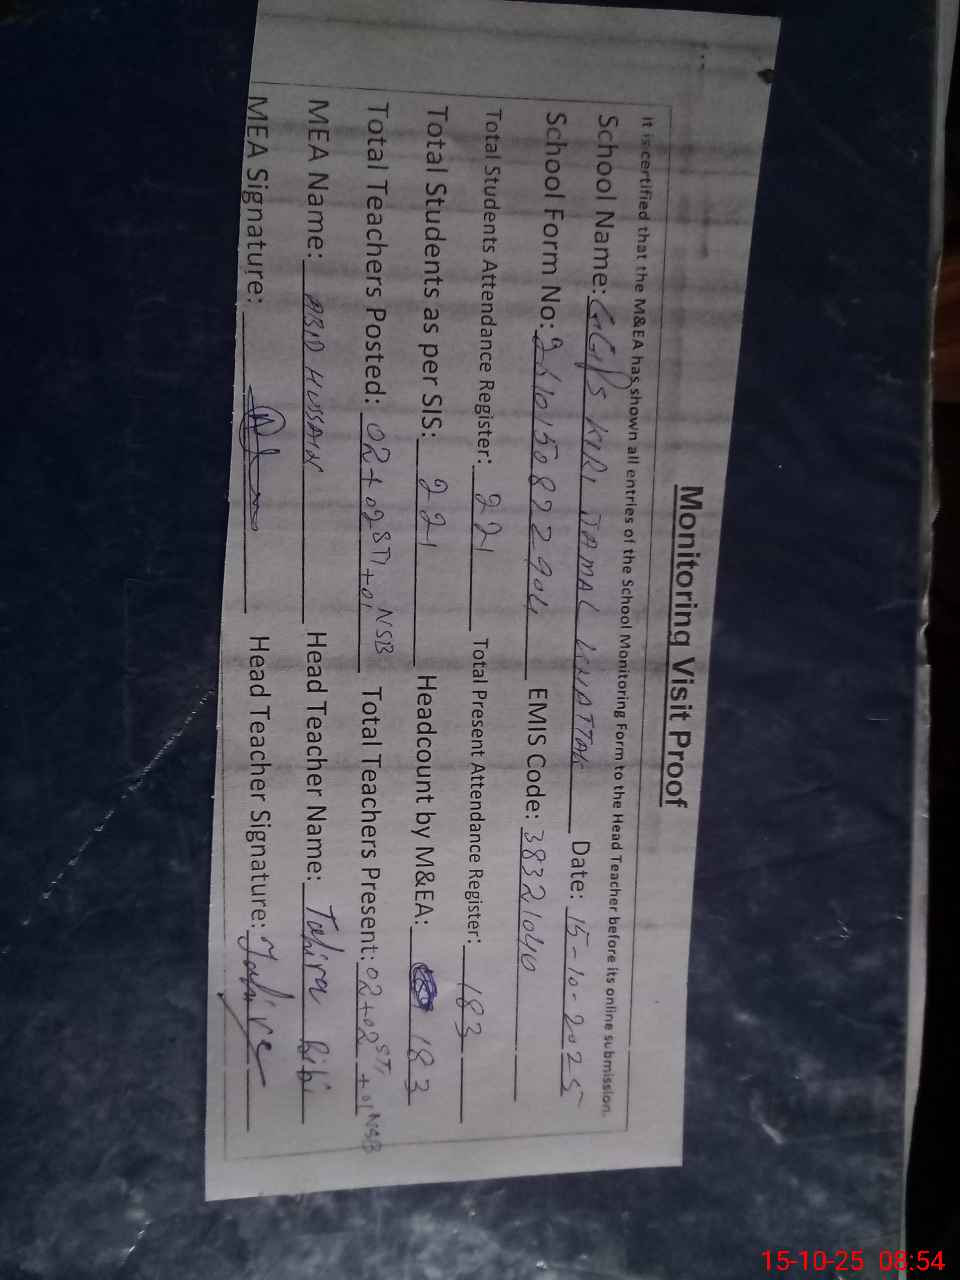 Monitoring Visit Proof
It is certified that the M&EA has shown all entries of the School Monitoring Form to the Head Teacher before its online submission.
School Name: GGPS KIRI JAMAL KHATTAK Date: 15-10-2025
School Form No: EMIS Code: 38321040
Total Students Attendance Register: 221 Total Present Attendance Register: 183
Total Students as per SIS: 221 Headcount by M&EA: 183
Total Teachers Posted: 02+02 STI+01 NSB Total Teachers Present: 02+02 STI +01 NSB
MEA Name: ABID HUSSAIN Head Teacher Name: Tahira Bibi
MEA Signature: Head Teacher Signature: Tahira
15-10-25 08:54